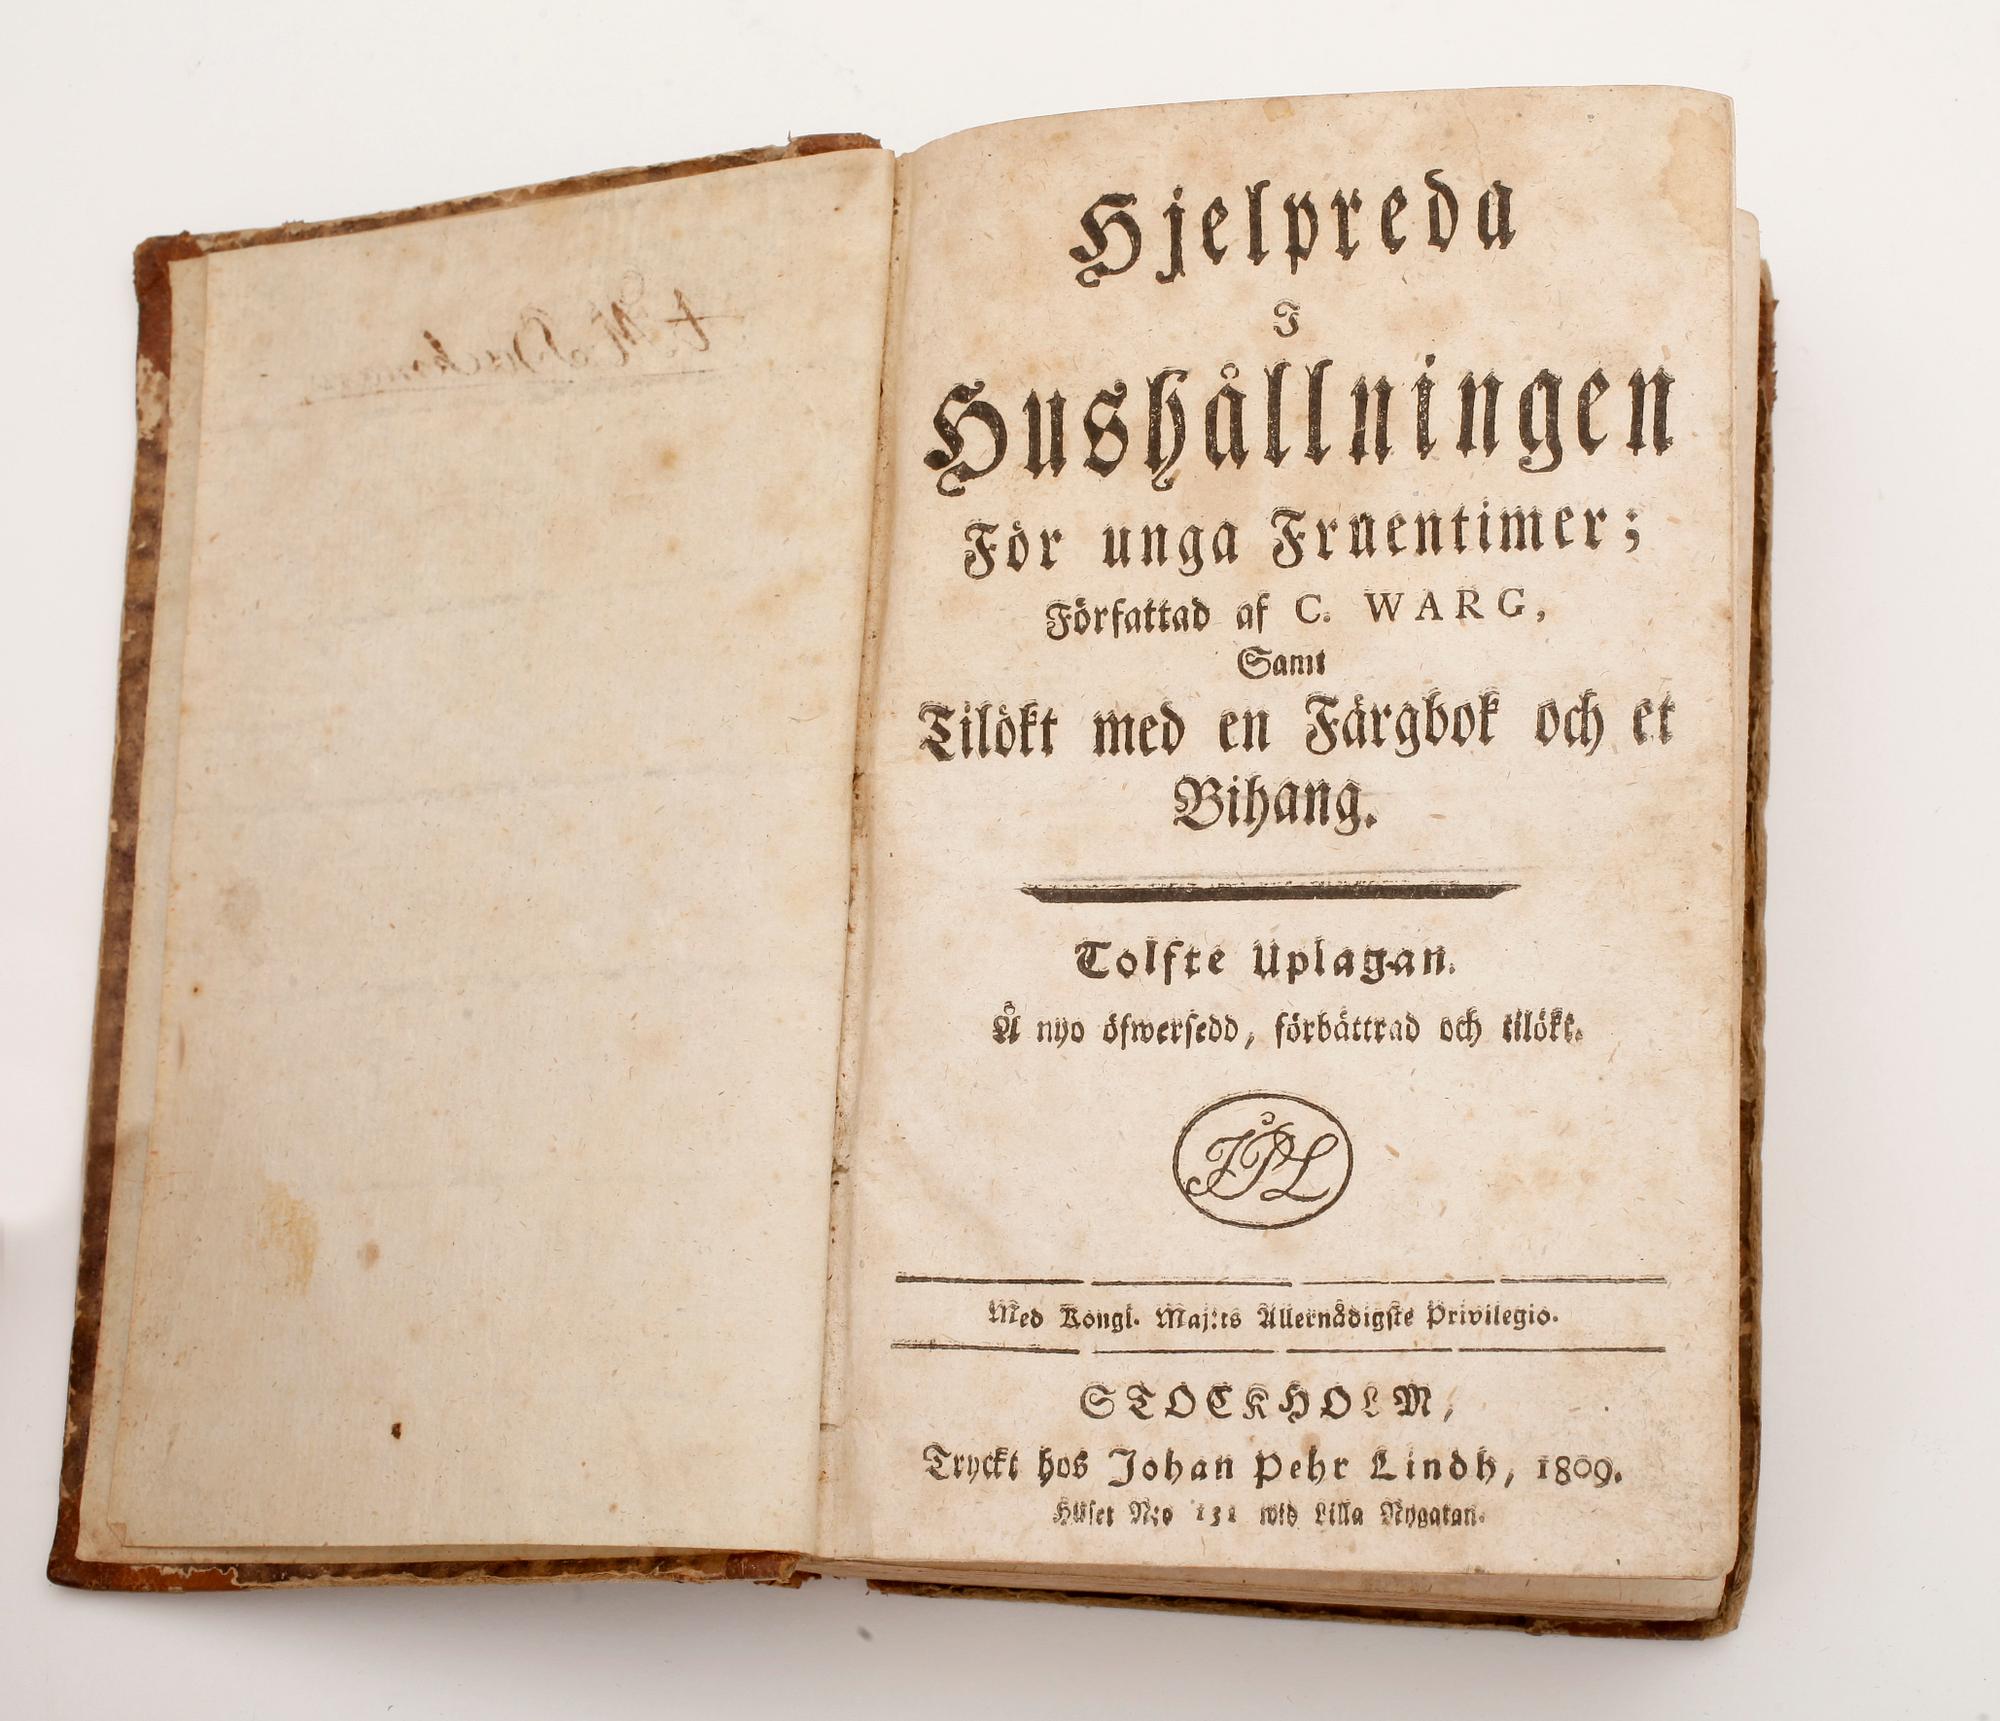 Hjelpreda
I
Hushållningen
För unga Fruentimer;
Författad af C. WARG,
Samt
Tilökt med en Färgbok och et
Bihang.
Tolfte Uplagan.
Å nyo öfwersedd, förbättrad och tilökt.
JPL
Med Kongl. Maj:ts Allernådigste Privilegio.
STOCKHOLM,
Tryckt hos Johan Pehr Lindh, 1809.
Huset N:o 131 wid Lilla Nygatan.